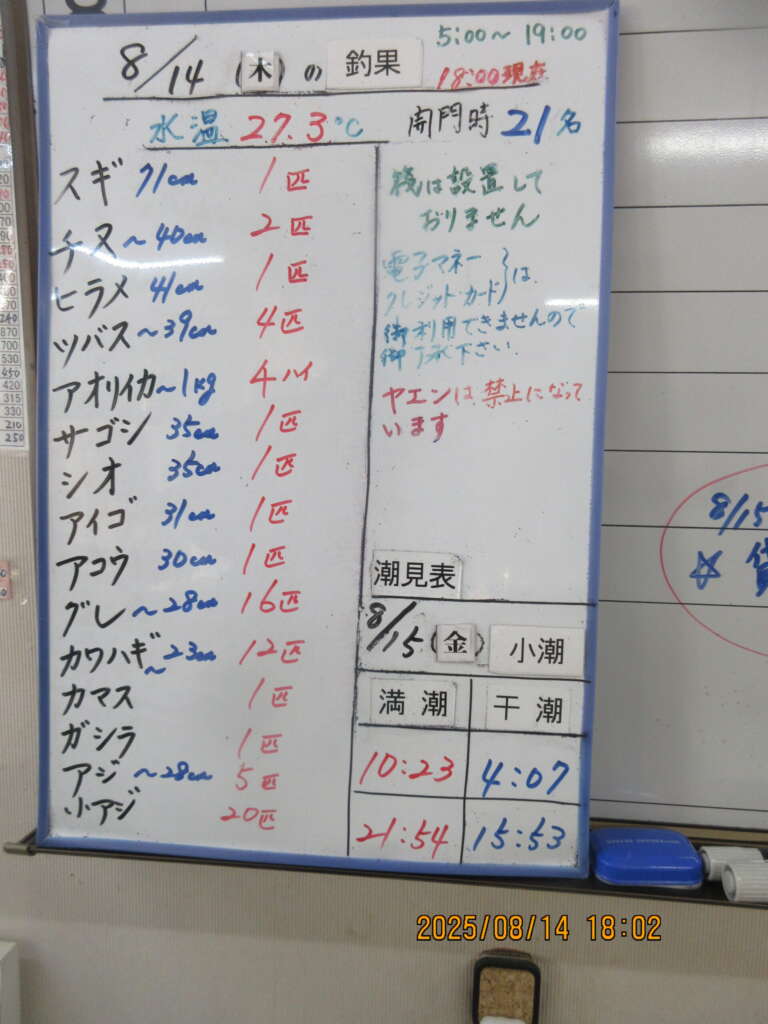 5:00～19:00
8/14(木)の釣果
18:00現在
水温 27.3℃
開門時 21名
スギ 71cm 1匹
チヌ ～40cm 2匹
ヒラメ 41cm 1匹
ツバス ～39cm 4匹
アオリイカ ～1kg 4ハイ
サゴシ 35cm 1匹
シオ 35cm 1匹
アイゴ 31cm 1匹
アコウ 30cm 1匹
グレ ～28cm 16匹
カワハギ ～23cm 12匹
カマス 1匹
ガシラ 1匹
アジ ～28cm 5匹
小アジ 20匹
は設置して
おりません
電子マネー
クレジット・カード は
御利用できませんので
御了承下さい.
ヤエンは禁止になって
います
潮見表
8/15(金) 小潮
満潮 干潮
10:23 4:07
21:54 15:53
8/15
☆
870
700
530
450
420
315
330
210
250
2025/08/14 18:02